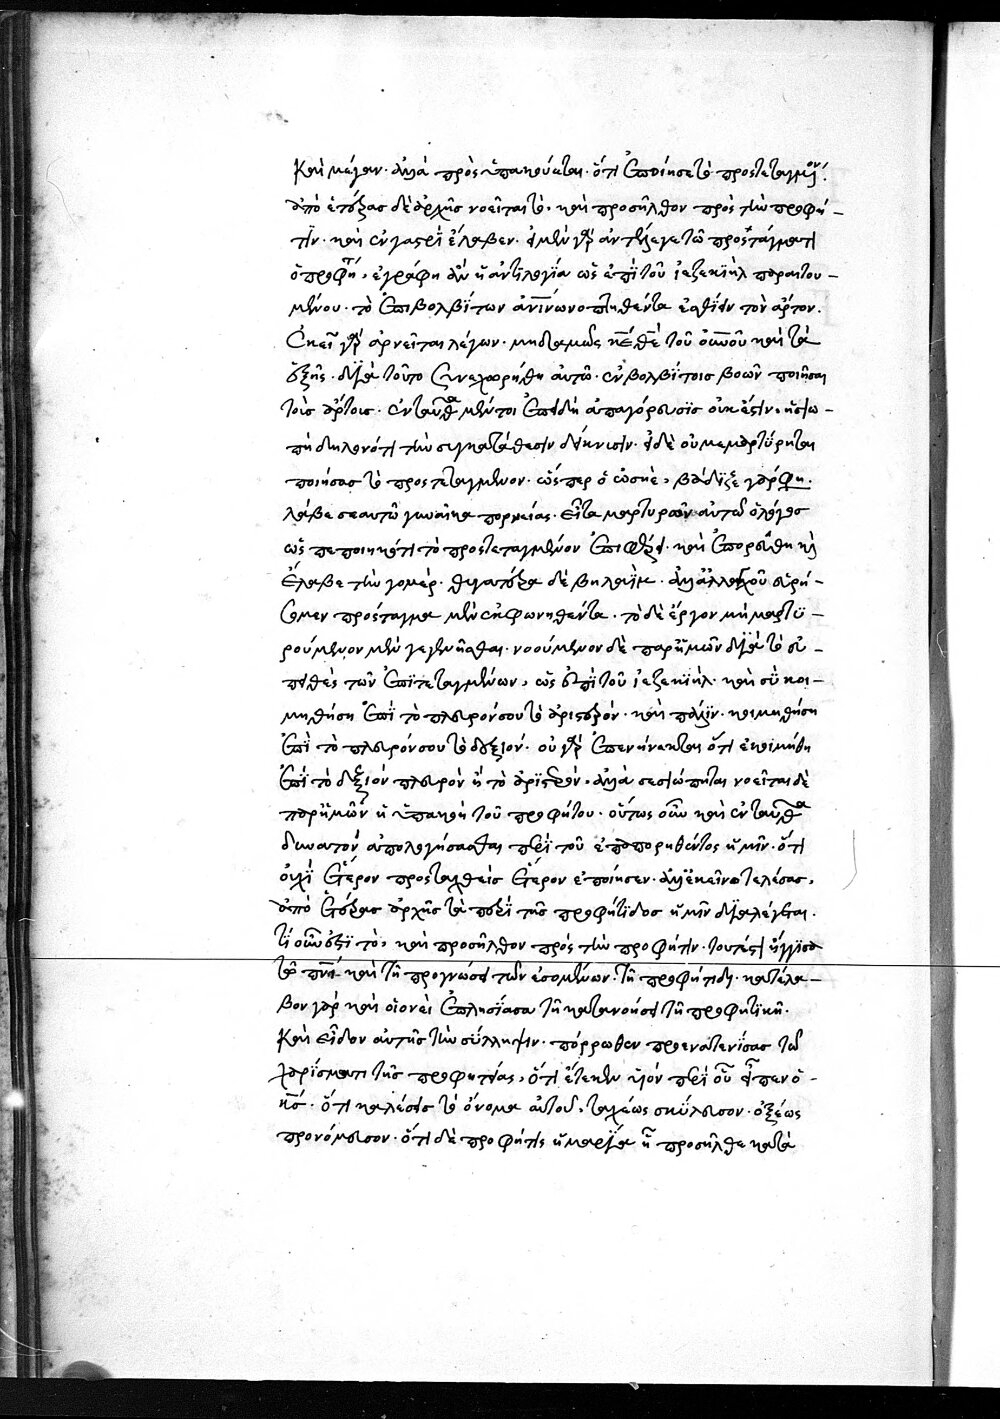 καὶ μέγαν· ἀλλὰ πρὸς ὑπακούεται· ὅτι ἐποίησε τὸ προστεταγμένον·
ἀπὸ ἑτέρας δὲ ἀρχῆς νοεῖται τὸ, καὶ προσῆλθον πρὸς τὴν προφή–
τιν· καὶ ἐν γαστρὶ ἔλαβεν· εἰ μὲν γὰρ ἀντέλεγε τῷ προστάγματι
ὁ προφήτης, ἐγράφη ἂν ἡ ἀντιλογία ὡς ἐπὶ τοῦ ἰεζεκιὴλ παραιτου–
μένου· τὸ ἐπὶ βολβίτων ἀνθρωπίνων ὀπτηθέντα ἐσθίειν τὸν ἄρτον·
ἐκεῖ γὰρ ἀρνεῖται λέγων· μηδαμῶς κύριε θεὲ τοῦ οὐρανοῦ καὶ τὰ
ἑξῆς· διὰ τοῦτο συνεχωρήθη αὐτῷ· ἐν βολβίτοις βοῶν ποιῆσαι
τοὺς ἄρτους· ἐνταῦθα μέντοι ἐπειδὴ ἀπαγόρευσις οὐκ ἔστιν· ἡ σιω–
πὴ δηλονότι τὴν συγκατάθεσιν δείκνυσιν· εἰ δὲ οὐ μεμαρτύρηται
ποιήσας τὸ προστεταγμένον· ὥσπερ ὁ ὠσηὲ, βάδιζε γὰρ φη·
λάβε σεαυτῷ γυναῖκα πορνείας· εἶτα μαρτυρῶν αὐτῷ ὁ λόγος
ὡς πεποιηκότι τὸ προστεταγμένον ἐπιφέρει· καὶ ἐπορεύθη καὶ
ἔλαβε τὴν γομὲρ· θυγατέρα δὲ βηλαὶμ· ἀλλ' ἀλλαχοῦ εὑρή–
σομεν πρόσταγμα μὲν ἐκφωνηθέντα· τὸ δὲ ἔργον μὴ μαρτυ–
ρούμενον μὲν γεγενῆσθαι· νοούμενον δὲ παρ' ἡμῶν διὰ τὸ εὐ–
πειθὲς τῶν ἐπιτεταγμένων, ὡς ἐπὶ τοῦ ἰεζεκιὴλ· καὶ σὺ κοι–
μηθήσῃ ἐπὶ τὸ πλευρόν σου τὸ ἀριστερόν· καὶ πάλιν· κοιμηθήσῃ
ἐπὶ τὸ πλευρόν σου τὸ δεξιόν· οὐ γὰρ ἐπενήνεκται ὅτι ἐκοιμήθη
ἐπὶ τὸ δεξιὸν πλευρὸν ἢ τὸ ἀριστερόν· ἀλλὰ σεσιώπηται νοεῖται δὲ
παρ' ἡμῶν ἡ ὑπακοὴ τοῦ προφήτου· οὕτως οὖν καὶ ἐνταῦθα
δυνατὸν ἀπολογήσασθαι περὶ τοῦ ἐπαπορηθέντος ἡμῖν· ὅτι
οὐχὶ ἕτερον προσταχθεὶς ἕτερον ἐποίησεν· ἀλλ' ἐκεῖνο τελέσας,
ἀπὸ ἑτέρας ἀρχῆς τὰ περὶ τῆς προφήτιδος ἡμῖν διαλέγεται·
τί οὖν ἐστὶ τὸ, καὶ προσῆλθον πρὸς τὴν προφῆτιν· τουτέστιν ἤγγισα
τῷ πνεύματι καὶ τῇ προγνώσει τῶν ἐσομένων· τῇ προφήτιδι· κατέλα–
βον γὰρ καὶ οἱονεὶ ἐπλησίασα τῇ κατανοήσει τῇ προφητικῇ·
καὶ εἶδον αὐτῆς τὴν σύλληψιν· πόρρωθεν προενατενίσας τῷ
χαρίσματι τῆς προφητείας, ὅτι ἔτεκεν υἱόν περὶ οὗ εἶπεν ὁ
κύριος· ὅτι καλέσεις τὸ ὄνομα αὐτοῦ, ταχέως σκύλευσον· ὀξέως
προνόμευσον· ὅτι δὲ προφῆτις ἡ μαρία ᾗ προσῆλθε κατὰ